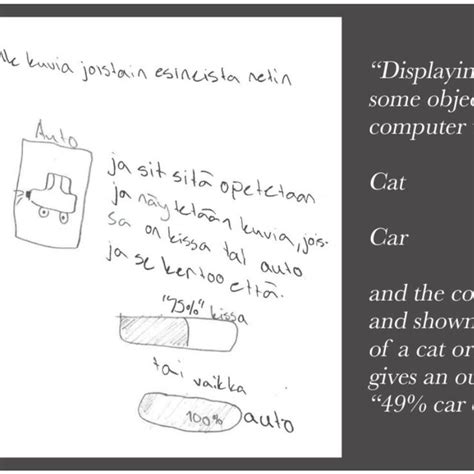 kuvia joistain esineistä netin
Auto
ja sit sitä opetetaan
ja näytetään kuvia, jois-
sa on kissa tai auto
ja se kertoo että.
"75%" kissa
tai vaikka
100% auto
"Displayin
some objec
computer
Cat
Car
and the co
and shown
of a cat or
gives an ou
"49% car